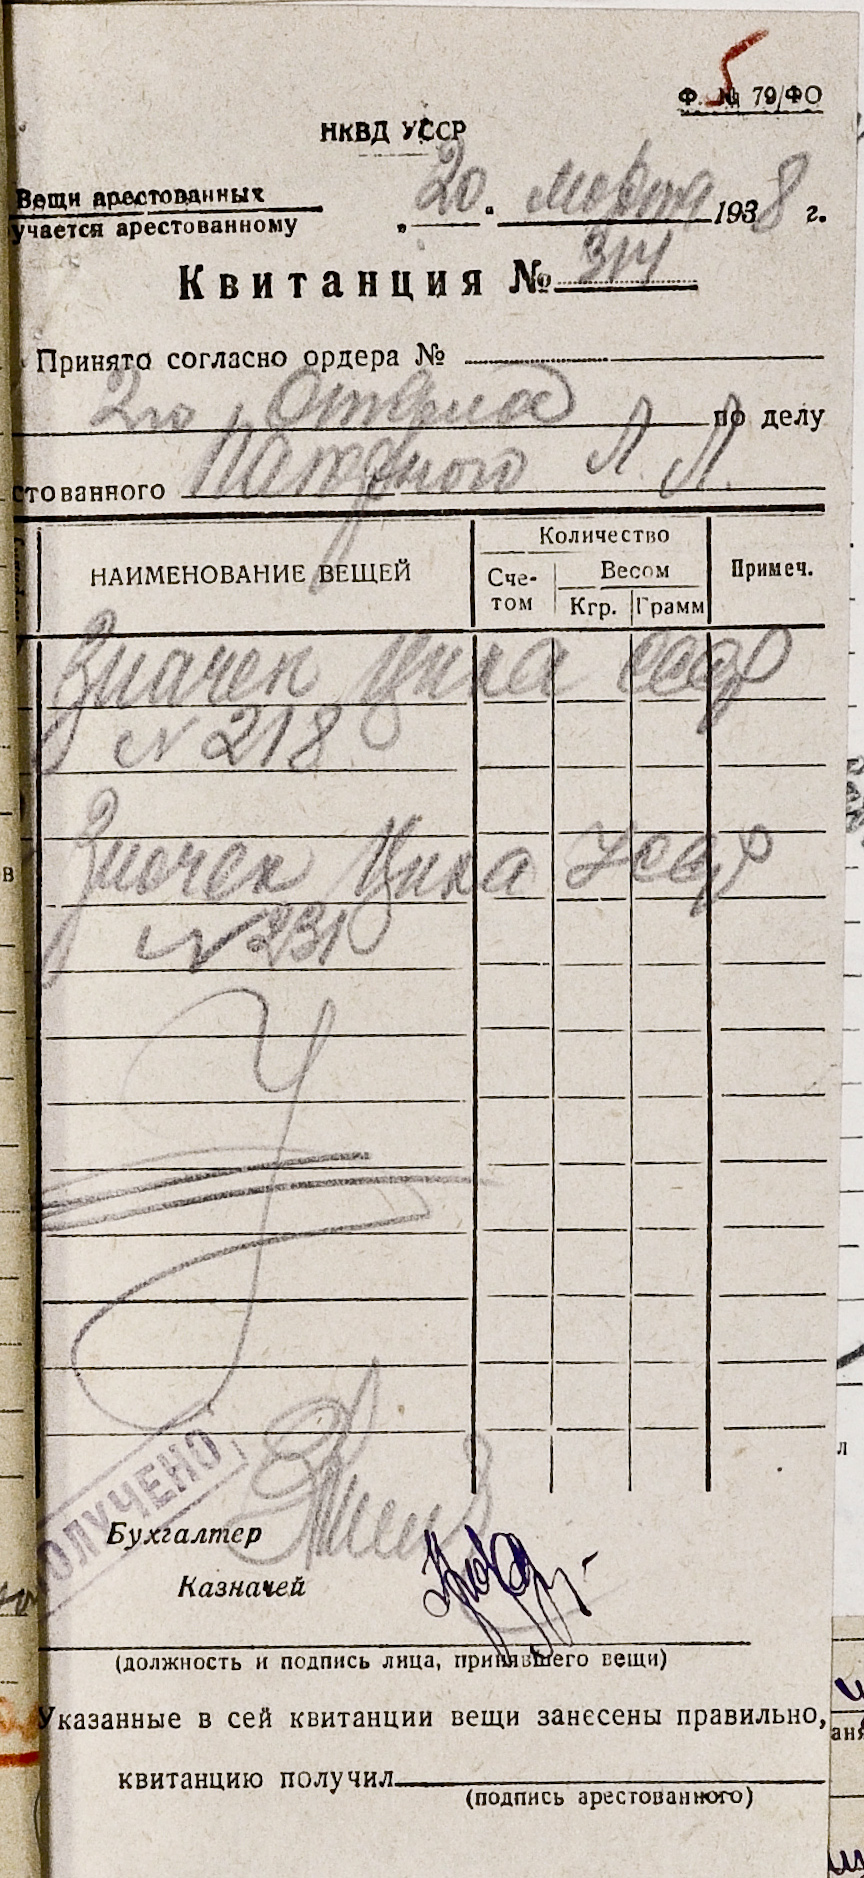 5
Ф. № 79/ФО
НКВД УССР
Вещи арестованных
учается арестованному
„20" марта 1938 г.
Квитанция № 314
Принято согласно ордера №
2го Отдела по делу
стованного Л. Л.
НАИМЕНОВАНИЕ ВЕЩЕЙ
Количество
Счетом
Весом
Кгр.
Грамм
Примеч.
Значек Цика СССР
N 218
Значек Цика УССР
N 231
ПОЛУЧЕНО
Бухгалтер
Казначей
(должность и подпись лица, принявшего вещи)
Указанные в сей квитанции вещи занесены правильно,
квитанцию получил
(подпись арестованного)